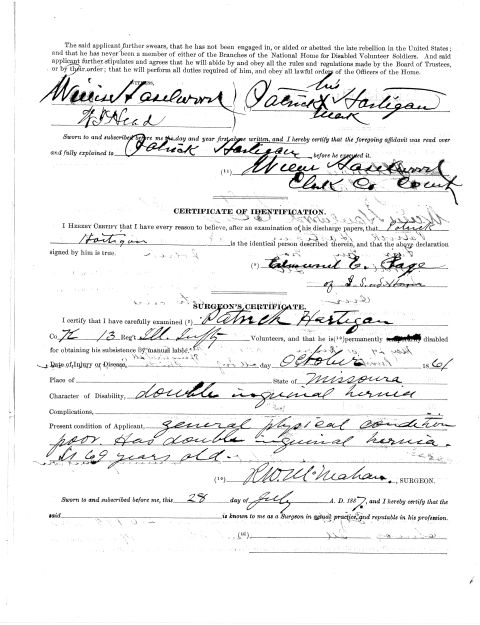 The said applicant further swears, that he has not been engaged in, or aided or abetted the late rebellion in the United States;
and that he has never been a member of either of the Branches of the National Home for Disabled Volunteer Soldiers. And said
applicant further stipulates and agrees that he will abide by and obey all the rules and regulations made by the Board of Trustees,
or by their order; that he will perform all duties required of him, and obey all lawful orders of the Officers of the Home.
his
Willis Haselwood ) Patrick Hartigan
Head mark
Sworn to and subscribed before me the day and year first above written, and I hereby certify that the foregoing affidavit was read over
and fully explained to Patrick Hartigan before he executed it.
(11) Willis Haselwood
Clerk Co Court
CERTIFICATE OF IDENTIFICATION.
I HEREBY CERTIFY that I have every reason to believe, after an examination of his discharge papers, that Patrick
Hartigan is the identical person described therein, and that the above declaration
signed by him is true.
(2) Edmund E. Page
of
SURGEON'S CERTIFICATE.
I certify that I have carefully examined (2) Patrick Hartigan
Co. K 13 Reg't Ill. Infty Volunteers, and that he is (18) permanently disabled
for obtaining his subsistence by manual labor.
Date of Injury or Disease, day October 1861
Place of State of Missoura
Character of Disability, double inguinal hernia
Complications,
Present condition of Applicant, general physical condition
poor. Has double inguinal hernia.
Is 69 years old.
(10) R.W. McMahan, SURGEON.
Sworn to and subscribed before me, this 28 day of July A. D. 1887, and I hereby certify that the
said is known to me as a Surgeon in actual practice, and reputable in his profession.
(16)